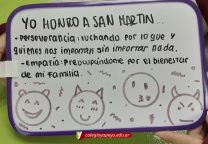 YO HONRO A SAN MARTIN...
-Perseverancia: luchando por lo que y
quienes nos importan sin importar nada.
-Empatía: Preocupándome por el bienestar
de mi familia.
colegioyapeyu.edu.ar